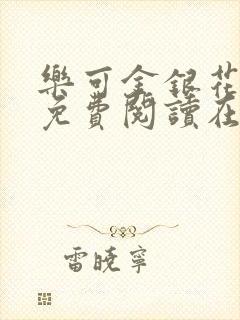 樂可金銀花
免費閱讀在
雷曉寧